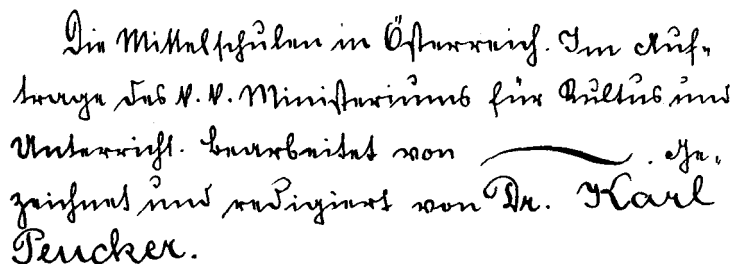 Die Mittelschulen in Österreich. Im Auf-
trage des k. k. Ministeriums für Kultus und
Unterricht. bearbeitet von . Ge-
zeichnet und redigiert von Dr. Karl
Peucker.